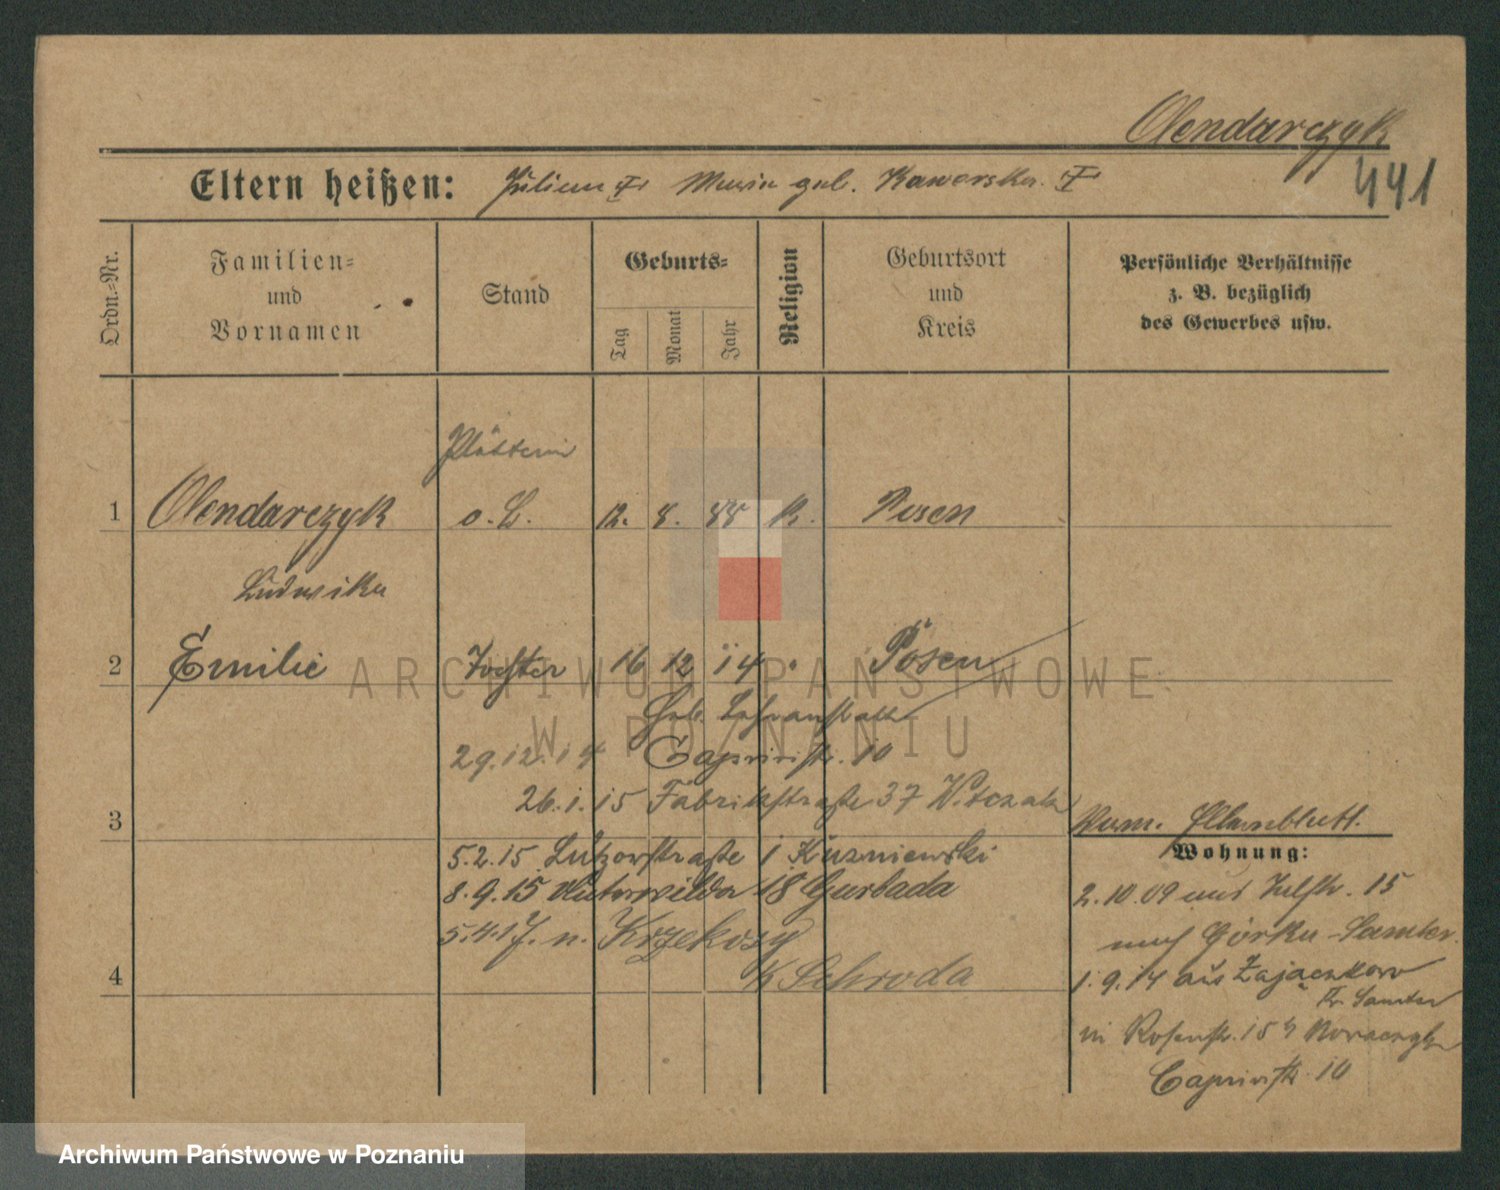 Olendarczyk
441
Eltern heißen: Julian † Maria geb. Kaworska. †
Ordn.-Nr.
Familien-
und
Vornamen
Stand
Geburts-
Tag
Monat
Jahr
Religion
Geburtsort
und
Kreis
Persönliche Verhältnisse
z. B. bezüglich
des Gewerbes usw.
Plätterin
1 Olendarczyk o. B. 12. 8. 88 K. Posen
Ludwika
2 Emilie Tochter 16 12 14 " Posen
Geb. Lehranstalt
29.12.14 Caprivistr. 10
26.1.15 Fabrikstraße 37 Witczak
3
Pers. Blatt.
Wohnung:
5.2.15 Lützowstraße 1 Kuzniewski
8.9.15 Unterwilda 18 Gurbada
5.4.17. n. Krzekosy
K Schroda
4
2.10.09 aus 15
nach Górka-Samter.
1.9.14 aus Zajączkowo
Kr. Samter
in Rosenstr. 15
Caprivistr. 10
ARCHIWUM PAŃSTWOWE
W POZNANIU
Archiwum Państwowe w Poznaniu